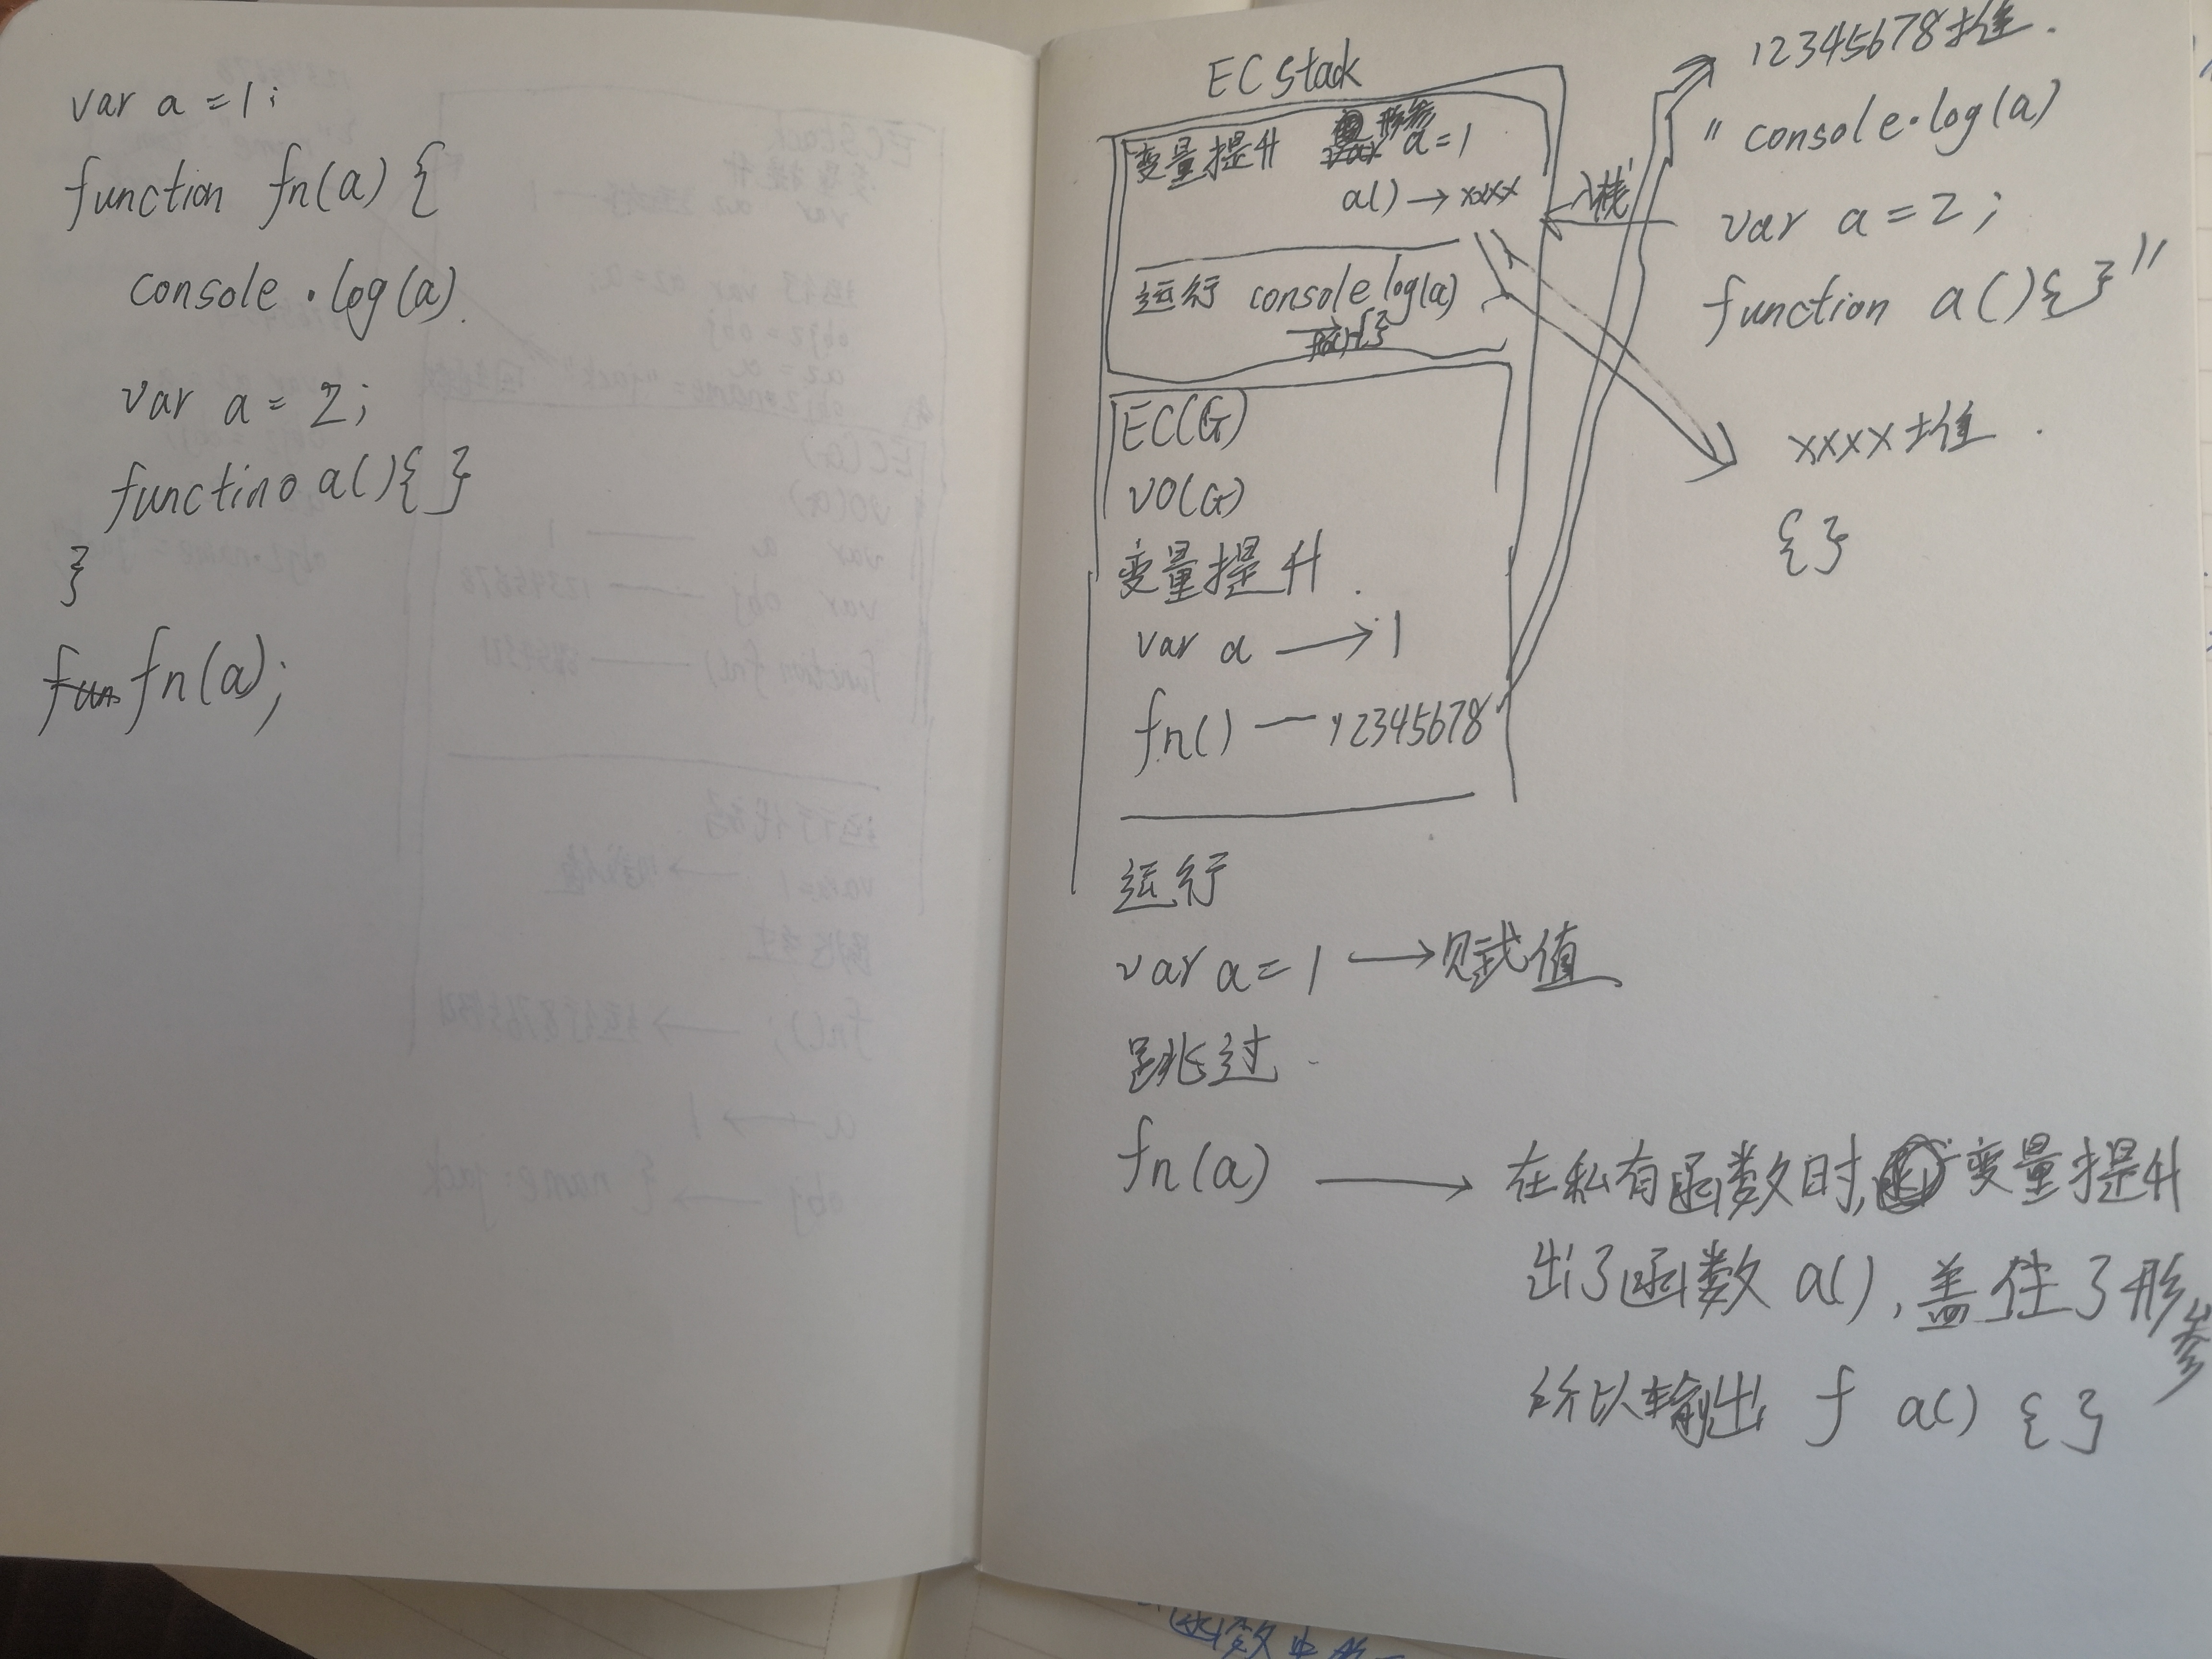 var a = 1;
function fn(a) {
console.log(a).
var a = 2;
functino a(){ }
}
fn(a);
EC Stack
变量提升 形参 a=1
a() → xxxx
运行 console log(a)
入栈
EC(G)
VO(G)
变量提升.
var a → 1
fn() — 12345678
运行
var a = 1 → 赋值
跳过
fn(a) → 在私有函数时, 变量提升
出了函数 a(), 盖住了形参
所以输出 f a() { }
12345678堆.
" console.log(a)
var a = 2;
function a(){ }"
xxxx堆.
{ }